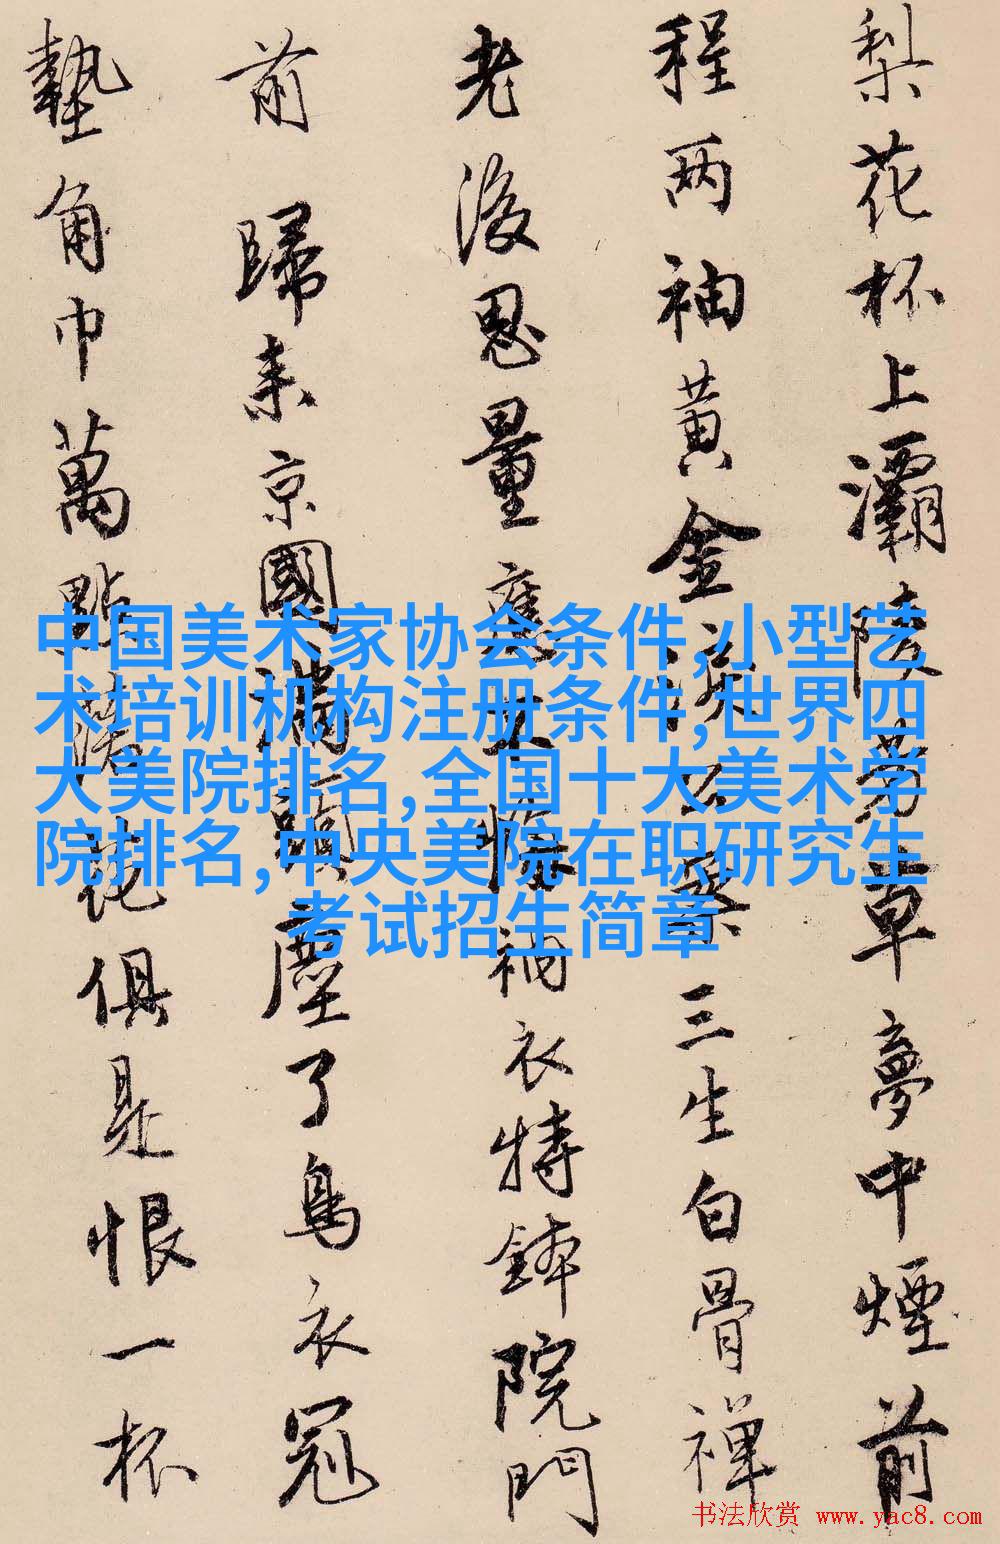 梨花杯上灞陵芳草夢中煙前
程两袖黄金淚公案三生白骨禅
老後思量應不悔衲衣持鉢院門
前歸来京國滿頭塵了烏衣冠
墊角巾萬點落花俱是恨一杯
中国美术家协会条件,小型艺
术培训机构注册条件,世界四
大美院排名,全国十大美术学
院排名,中央美院在职研究生
考试招生简章
书法欣赏 www.yac8.com